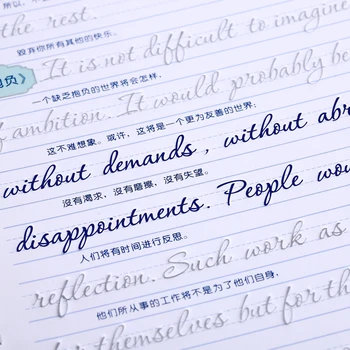 the rest.
毁弃你所有其他的快乐。
抱负》
It is not difficult to imagine
一个缺乏抱负的世界将会怎样,
of ambition. It would probably be
这不难想象。或许,这将是一个更为友善的世界:
without demands, without abr
沒有渴求,沒有磨擦,沒有失望。
disappointments. People wou
人们将有时间进行反思。
reflection. Such work as
他们所从事的工作将不是为了他们自身,
for themselves but for th